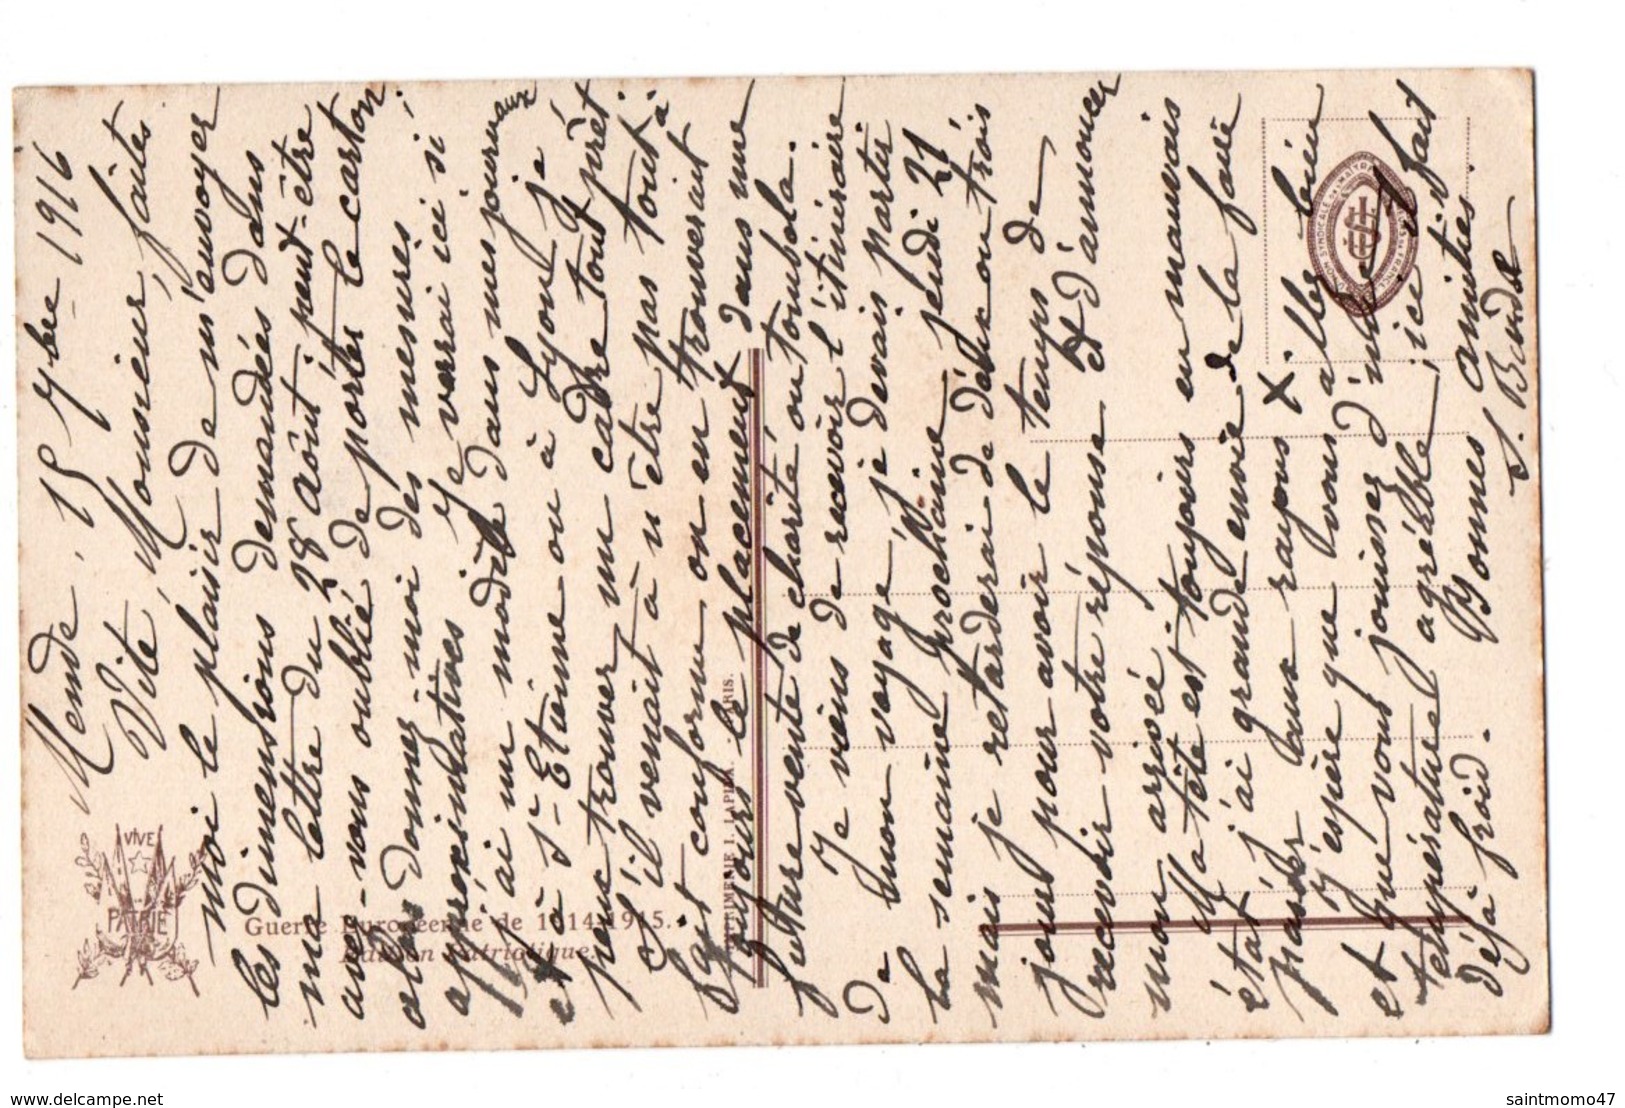 Mende, 15 7bre 1916
Vite, Monsieur, faites
moi le plaisir de m'envoyer
les dimensions demandées dans
ma lettre du 28 août; peut-être
avez-vous oublié de porter le carton;
alors donnez moi des mesures
approximatives; je verrai ici si
j'ai un modèle dans mes journaux
et à St-Etienne ou à Lyon, je
peux trouver un cadre tout prêt.
S'il venait à n'être pas tout à
fait conforme on en trouverait
toujours le placement dans une
future vente de charité ou tombola.
Je viens de recevoir l'itinéraire
de mon voyage; je devrais partir
la semaine prochaine, jeudi 21
mais je retarderai de deux ou trois
jours pour avoir le temps de
recevoir votre réponse et d'annoncer
mon arrivée.
Ma tête est toujours en mauvais
état; j'ai grande envie de la faire
trancher sans rayons X.
J'espère que vous allez bien
et que vous jouissez d'une
température agréable; ici il fait
déjà froid.
Bonnes amitiés.
VIVE
PATRIE
Guerre Européenne de 1914-1915.
Edition Patriotique.
IMPRIMERIE I. LAPINA. PARIS.
UNION SYNDICALE DES MAITRES IMPRIMEURS DE FRANCE
www.delcampe.net
saintmomo47